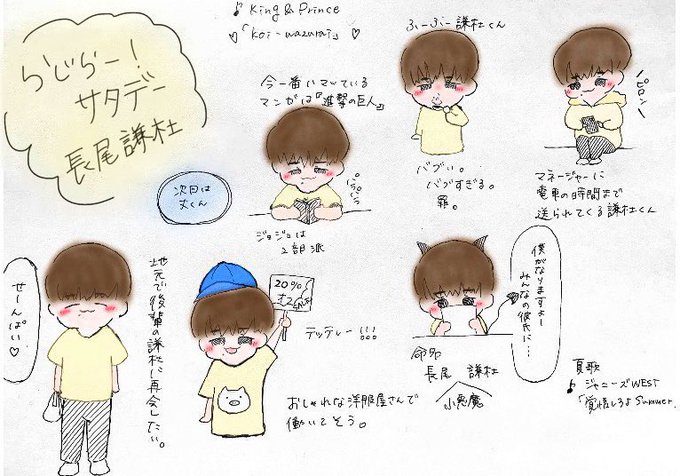 らじらー!
サタデー
長尾謙杜
♪ King & Prince
♡「koi-wazurai」♡
今一番ハマっている
マンガは『進撃の巨人』
ぱらぱら
ジョジョは
2部派
次回は
丈くん
ふーふー謙杜くん
バブい。
バブすぎる。
罪。
ピロン
マネージャーに
電車の時間まで
送られてくる謙杜くん
せーんぱい♡
地元で後輩の謙杜に再会したい。
20%
テッテレー!!!
おしゃれな洋服屋さんで
働いてそう。
僕がなりますよー
みんなの彼氏に…
命名
長尾 謙杜
小悪魔
夏歌
♪ ジャニーズWEST
「覚悟しろよSummer」